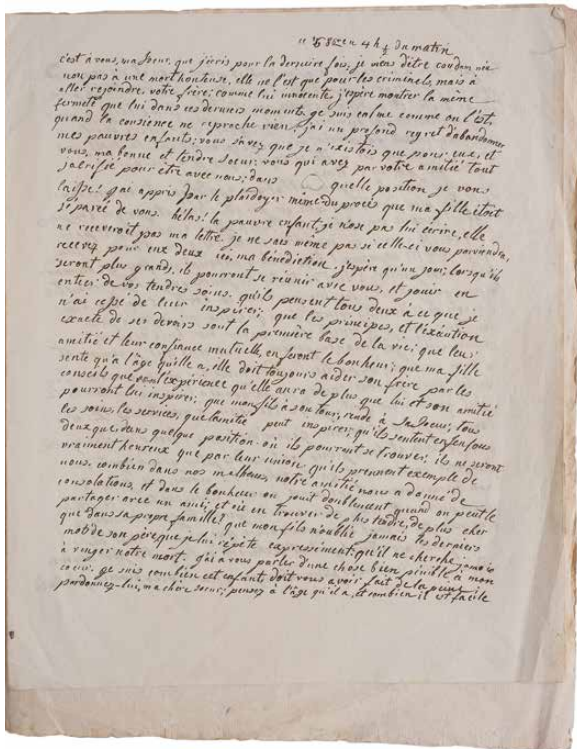 ce 16 8bre 4 h ½ du matin
c'est à vous, ma soeur, que j'écris pour la dernière fois, je viens d'etre condamnée
non pas à une mort honteuse, elle ne l'est que pour les criminels, mais à
aller rejoindre votre frère; comme lui innocente, j'espère montrer la même
fermeté que lui dans ces derniers moments. je suis calme comme on l'est
quand la conscience ne reproche rien; j'ai un profond regret d'abandonner
mes pauvres enfants; vous savez que je n'existois que pour eux, et
vous, ma bonne et tendre soeur; vous qui avez par votre amitié tout
sacrifié pour être avec nous; dans quelle position je vous
laisse! j'ai appris par le plaidoyer même du procès que ma fille étoit
séparée de vous. hélas! la pauvre enfant, je n'ose pas lui écrire, elle
ne recevroit pas ma lettre je ne sais même pas si celle-ci vous parviendra,
recevez pour eux deux ici, ma bénédiction. j'espère qu'un jour, lorsqu'ils
seront plus grands, ils pourront se réunir avec vous, et jouir en
entier de vos tendres soins. qu'ils pensent tous deux à ce que je
n'ai cessé de leur inspirer; que les principes, et l'éxécution
exacte de ses devoirs sont la première base de la vie; que leur
amitié et leur confiance mutuelle, en feront le bonheur; que ma fille
sente qu'à l'âge qu'elle a, elle doit toujours aider son frère par les
conseils que l'expérience qu'elle aura de plus que lui et son amitié
pourront lui inspirer; que mon fils à son tour, rende à sa soeur, tous
les soins, les services, que l'amitié peut inspirer; qu'ils sentent enfin tous
deux que, dans quelque position où ils pourront se trouver, ils ne seront
vraiment heureux que par leur union. qu'ils prennent exemple de
nous. combien dans nos malheurs, notre amitié nous a donné de
consolations, et dans le bonheur on jouit doublement quand on peut le
partager avec un ami; et où en trouver de plus tendre, de plus cher
que dans sa propre famille? que mon fils n'oublie jamais les derniers
mots de son père, que je lui répète expressément: qu'il ne cherche jamais
à venger notre mort. j'ai à vous parler d'une chose bien pénible à mon
coeur. je sais combien cet enfant, doit vous avoir fait de la peine;
pardonnez-lui, ma chère soeur; pensez à l'âge qu'il a, et combien il est facile